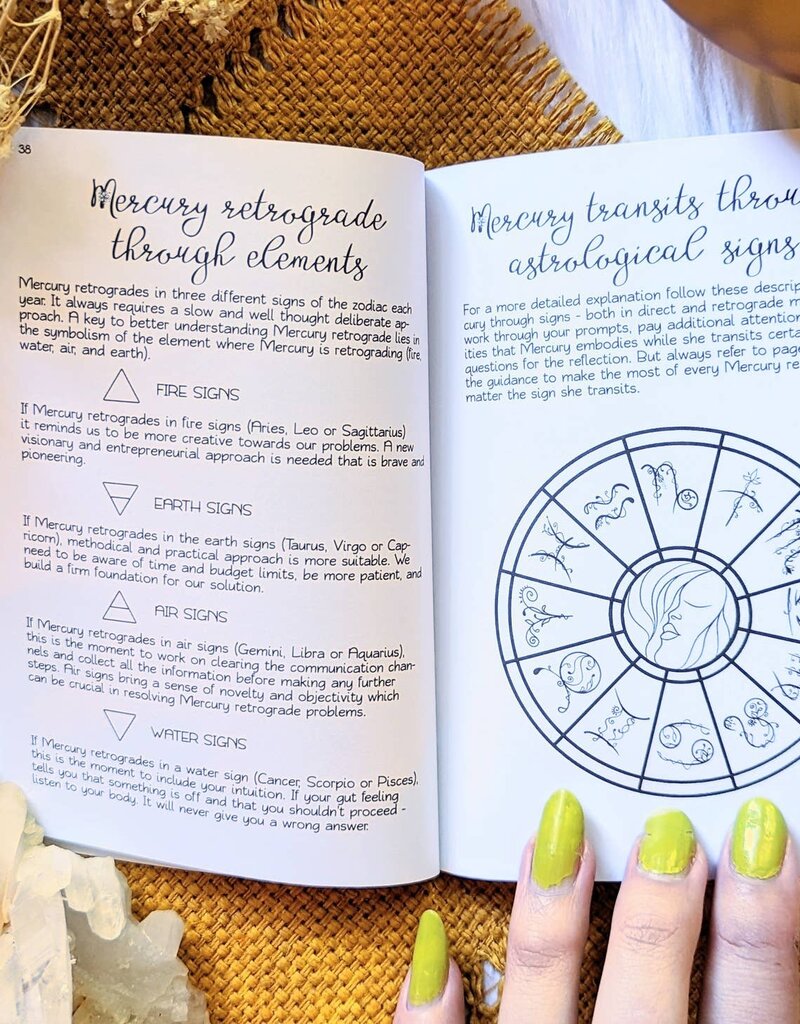 38
Mercury retrograde
through elements
Mercury retrogrades in three different signs of the zodiac each
year. It always requires a slow and well thought deliberate ap-
proach. A key to better understanding Mercury retrograde lies in
the symbolism of the element where Mercury is retrograding (fire,
water, air, and earth).
FIRE SIGNS
If Mercury retrogrades in fire signs (Aries, Leo or Sagittarius)
it reminds us to be more creative towards our problems. A new
visionary and entrepreneurial approach is needed that is brave and
pioneering.
EARTH SIGNS
If Mercury retrogrades in the earth signs (Taurus, Virgo or Cap-
ricorn), methodical and practical approach is more suitable. We
need to be aware of time and budget limits, be more patient, and
build a firm foundation for our solution.
AIR SIGNS
If Mercury retrogrades in air signs (Gemini, Libra or Aquarius),
this is the moment to work on clearing the communication chan-
nels and collect all the information before making any further
steps. Air signs bring a sense of novelty and objectivity which
can be crucial in resolving Mercury retrograde problems.
WATER SIGNS
If Mercury retrogrades in a water sign (Cancer, Scorpio or Pisces),
this is the moment to include your intuition. If your gut feeling
tells you that something is off and that you shouldn't proceed -
listen to your body. It will never give you a wrong answer.
Mercury transits
astrological signs
For a more detailed explanation follow these
cury through signs - both in direct and retrograde
work through your prompts, pay additional
ities that Mercury embodies while she transits
questions for the reflection. But always refer to
the guidance to make the most of every Mercury
matter the sign she transits.